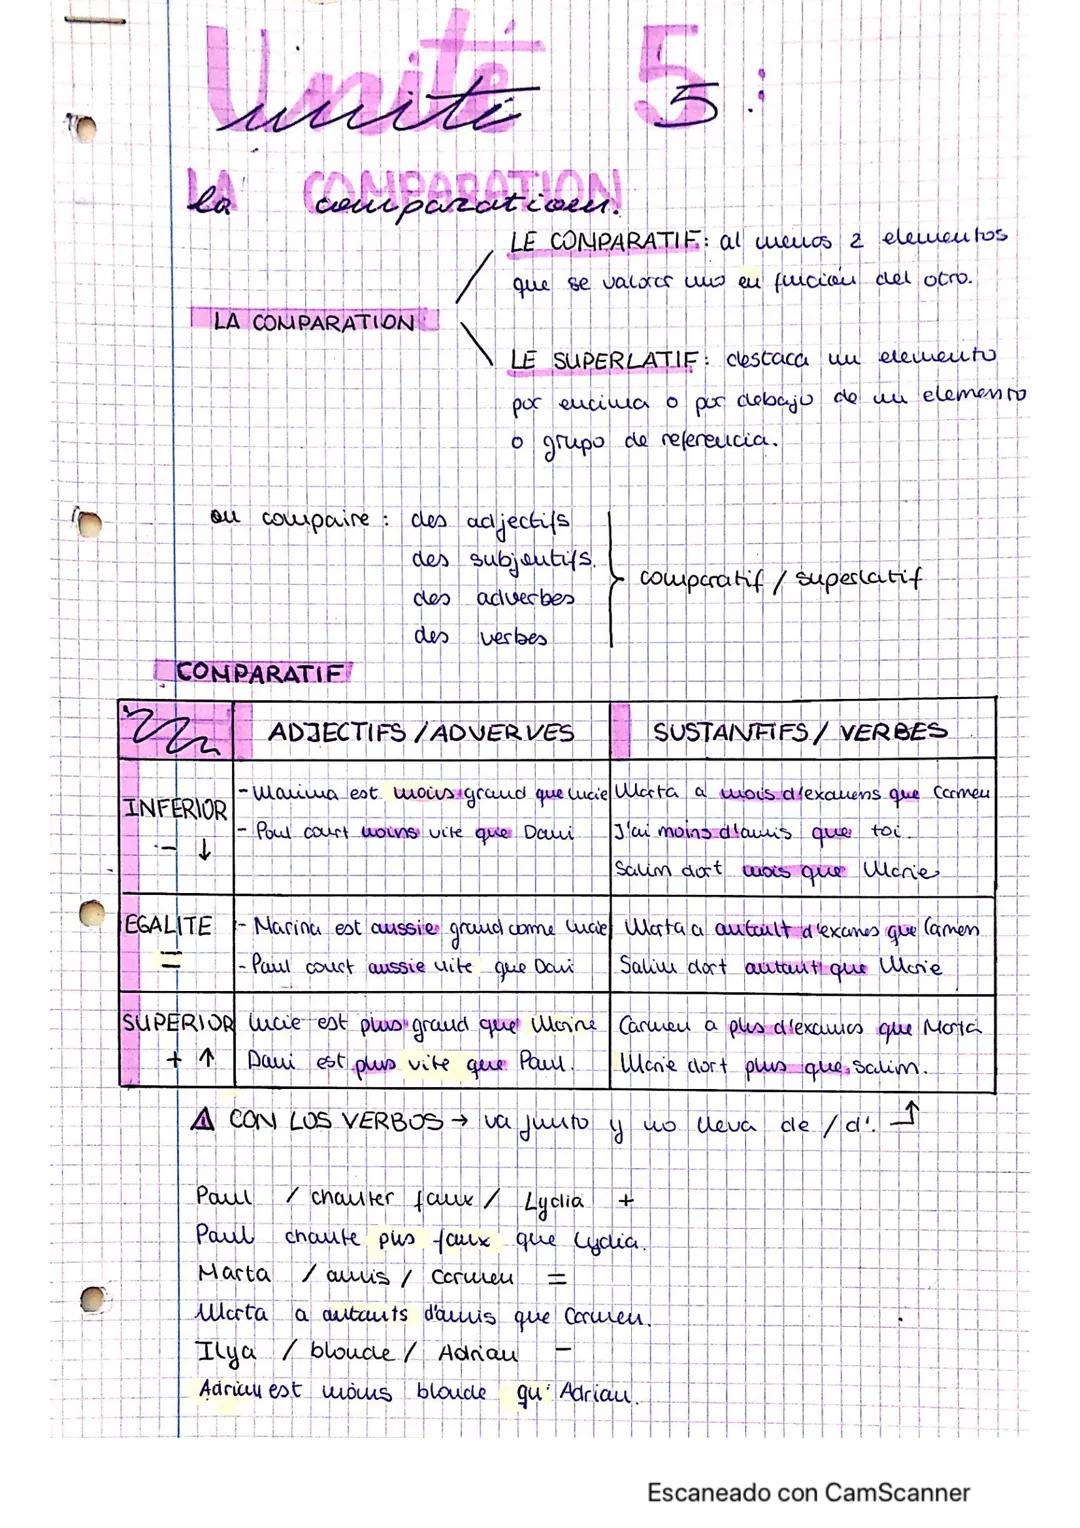 Unité 5:
LA COMPARATION
LE COMPARATIF: al menos 2 elementos
que se valorar uno en función del otro.
LA COMPARATION
LE SUPERLATIF: destaca un elemento
por encima o por debajo de un elemento
o grupo de referencia.
ou compaire : des adjectifs
des subjontifs.
des adverbes
des verbes
comparatif / superlatif
COMPARATIF
ADJECTIFS / ADVERVES
SUSTANTIFS / VERBES
INFERIOR
- ↓
- Marina est moins grand que Lucie
- Paul court moins vite que Dani
Marta a mois d'examens que Carmen
J'ai moins d'amis que toi.
Salim dort mois que Marie
EGALITE
=
- Marina est aussie grand come Lucie
- Paul court aussie vite que Dani
Marta a autault d'exames que Camen
Salim dort autant que Marie
SUPERIOR
+ ↑
Lucie est plus grand que Marine
Dani est plus vite que Paul.
Carmen a plus d'examens que Marta
Marie dort plus que Salim.
⚠ CON LOS VERBOS → va junto y no lleva de / d'. ↑
Paul / chanter faux / Lydia +
Paul chante plus faux que Lydia.
Marta / amis / Carmen =
Marta a autants d'amis que Carmen.
Ilya / blonde / Adrian -
Adrian est moins blonde qu' Adrian.
Escaneado con CamScanner